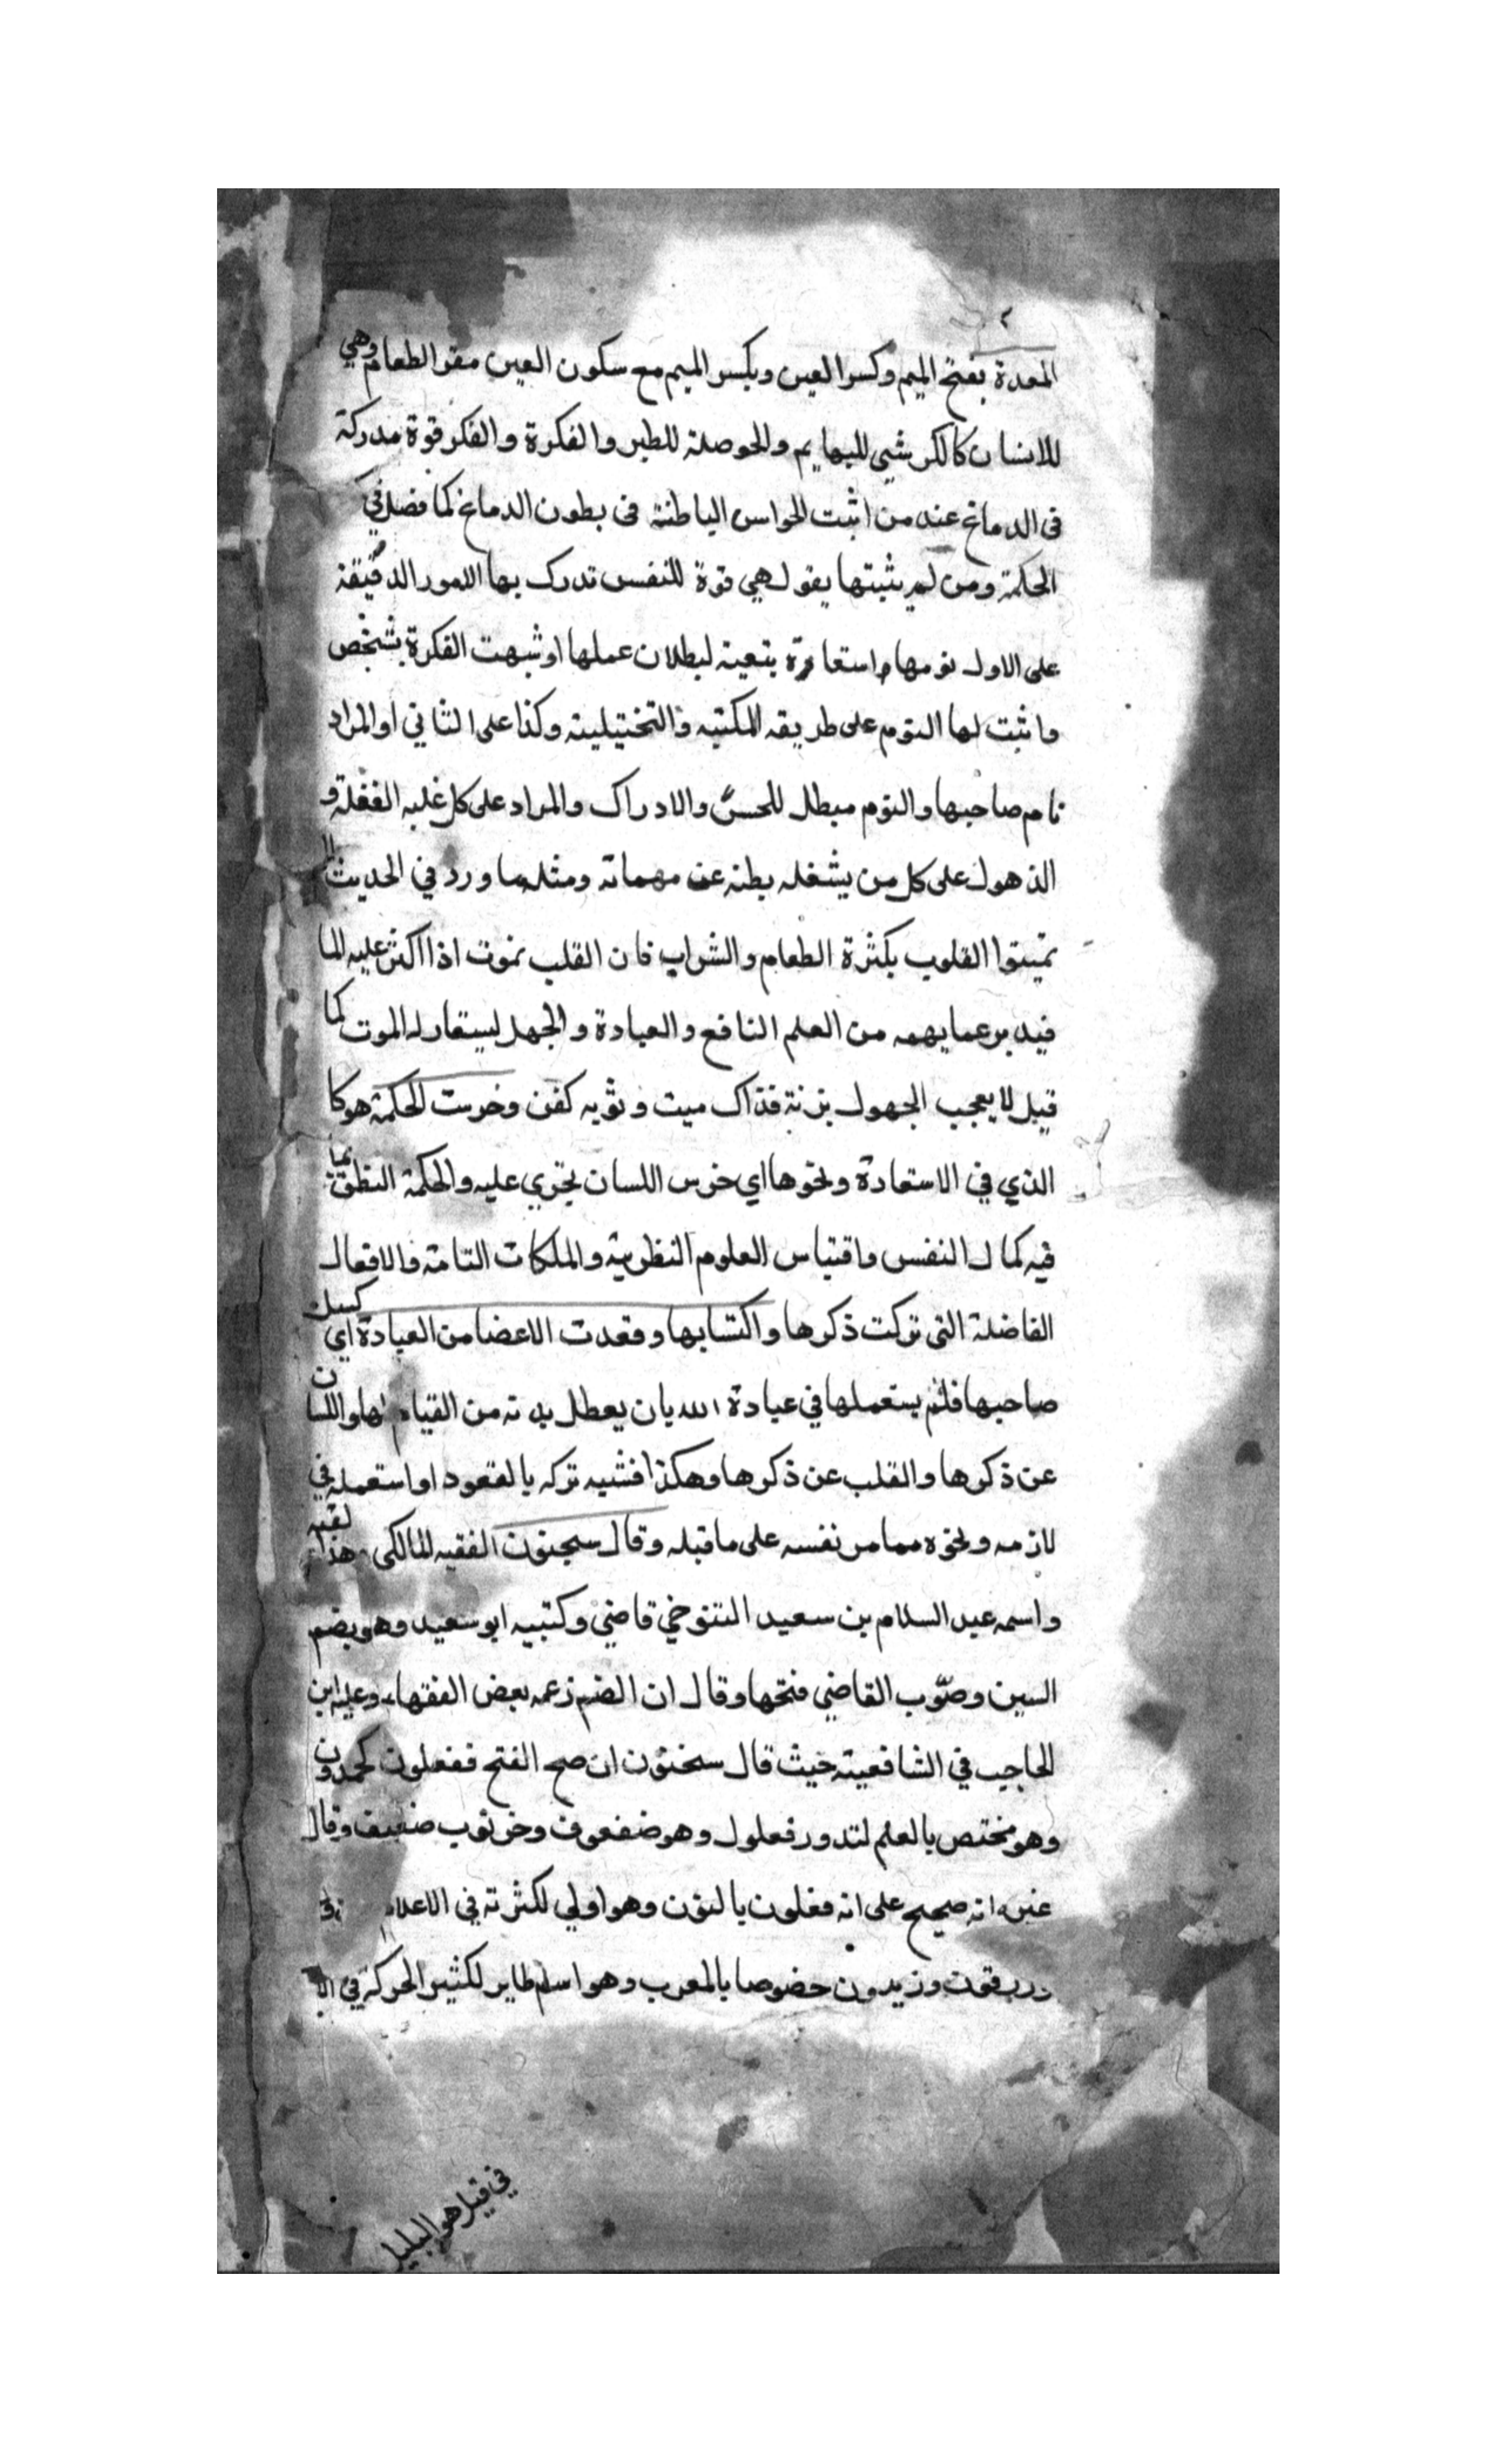 ٢
المعدة بفتح الميم وكسر العين وبكسر الميم مع سكون العين مقر الطعام وهي
للانسان كالكرشي للبهايم والحوصلة للطير والفكرة والفكر قوة مدركة
فى الدماغ عند من اثبت الحواس الباطنة فى بطون الدماغ كما فصل في
الحكمة ومن لم يثبتها يقول هي قوة للنفس تدرك بها الامور الدقيقة
على الاول نومها استعارة بتعية لبطلان عملها او شبهت الفكرة بشخص
واثبت لها النوم على طريقه المكنيه والتخييلية وكذا على الثاني او المراد
نام صاحبها والنوم مبطل للحس والادراك والمراد على كل غلبه الغفلة و
الذهول على كل من يشغله بطنه عن مهماته ومثله ما ورد في الحديث لا
تميتوا القلوب بكثرة الطعام والشراب فان القلب يموت اذا اكثر عليه الما
فيدبر عما يهمه من العلم النافع والعبادة والجهل ليستعار له الموت كما
قيل لا يعجب الجهول بزنة فذاك ميت وثوبه كفن وخرست الحكمة هو كا
الذي في الاستعادة ونحوها اي خرس اللسان يجري عليه والحكمة النطق بما
فيه كمال النفس واقتباس العلوم النظرية والملكات التامة والافعال
الفاضلة التى تركت ذكرها واكتسابها وقعدت الاعضا من العبادة اي كسل
صاحبها فلم يستعملها في عبادة الله بان يعطل يديه من القيام بها واللسان
عن ذكرها والقلب عن ذكرها وهكذا فشبه تركه بالقعود او استعمله في
لازمه ونحوه مما مر نفسه على ما قبله وقال سحنون الفقيه المالكى هذا لقبه
واسمه عبد السلام بن سعيد التنوخي قاضي وكنيته ابو سعيد وهو بضم
السين وصوب القاضي فتحها وقال ان الضم زعمه بعض الفقهاء وعليه ابن
الحاجب في الشافعية حيث قال سحنون ان صح الفتح ففعلون كحمدون
وهو مختص بالعلم لندور فعلول وهو صعفوف وخرنوب ضعيف وقال
غيره انه صحيح على انه فعلون بالنون وهو اولي لكثرته في الاعلام
وزيدون خصوصا بالمغرب وهو اسم طاير لكثير الحركة في
في قيل هو البلبل